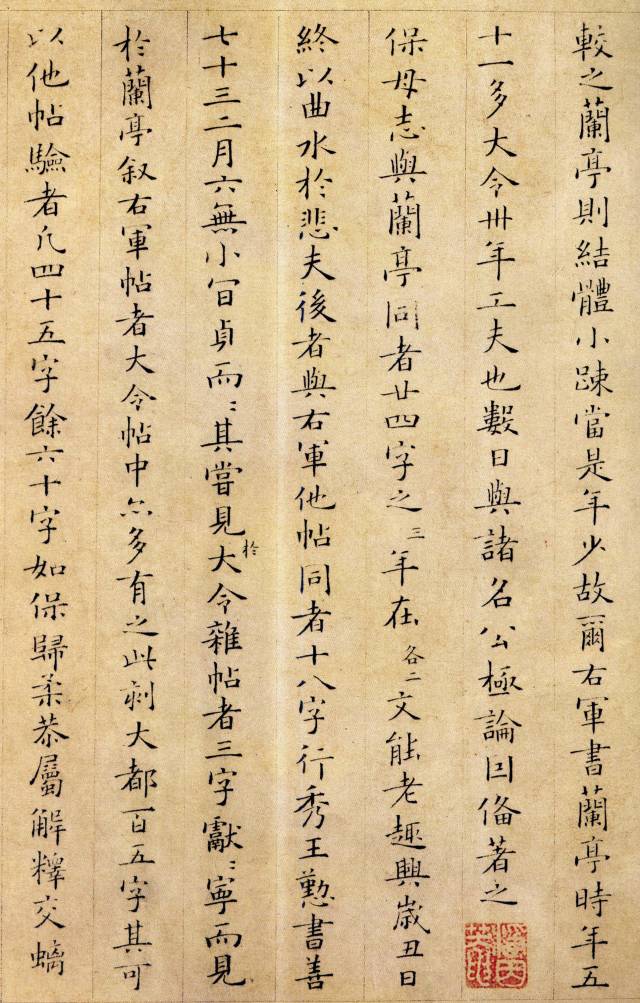 較之蘭亭則結體小踈當是年少故爾右軍書蘭亭時年五
十一多大令卅年工夫也數日與諸名公極論因備著之
保母志與蘭亭同者廿四字之三年在各二文能老趣興歲丑日
終以曲水於悲夫後者與右軍他帖同者十八字行秀王懃書善
七十三二月六無小百貞而〻其嘗見於大令雜帖者三字獻〻寧而見
於蘭亭叙右軍帖者大令帖中亦多有之此刻大都百五字其可
以他帖驗者凡四十五字餘六十字如保歸柔恭屬解釋交螭